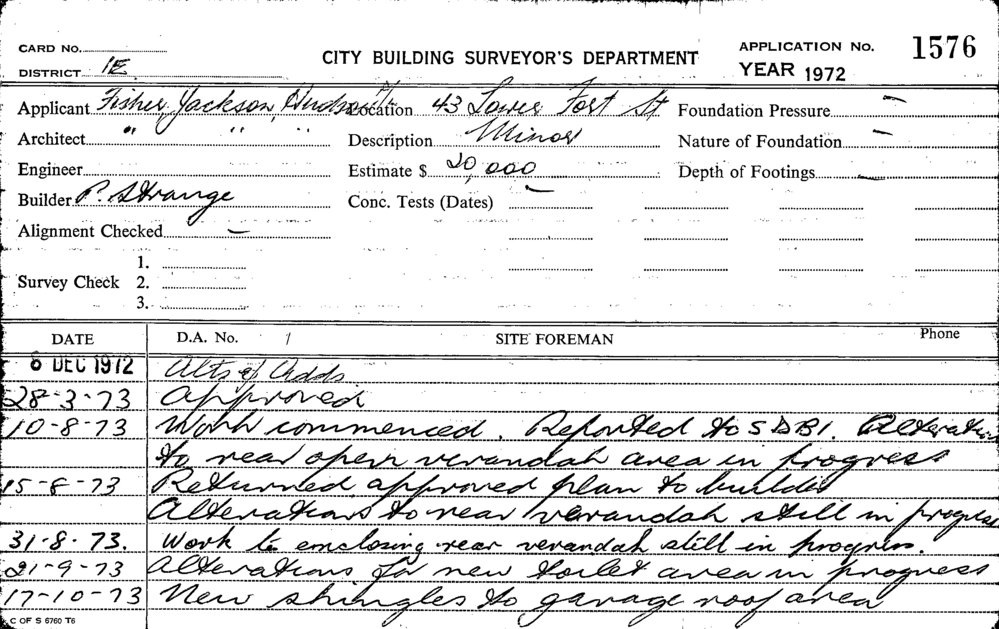 CARD No.
CITY BUILDING SURVEYOR'S DEPARTMENT
APPLICATION No. 1576
DISTRICT 1E
YEAR 1972
Applicant Fisher, Jackson, Hudson
Location 43 Lower Fort St
Foundation Pressure —
Architect " " "
Description Minor
Nature of Foundation —
Engineer
Estimate $ 20,000
Depth of Footings —
Builder P. Strange
Conc. Tests (Dates) —
Alignment Checked —
Survey Check 1.
2.
3.
DATE D.A. No. / SITE FOREMAN Phone
6 DEC 1972 Alts & Adds
28-3-73 Approved
10-8-73 Work commenced. Reported to SDBI. Alterations
to rear open verandah area in progress
15-8-73 Returned approved plan to builder
Alterations to rear verandah still in progress
31-8-73. Work to enclosing rear verandah still in progress.
21-9-73 Alterations for new toilet area in progress
17-10-73 New shingles to garage roof area
C OF S 6760 T6